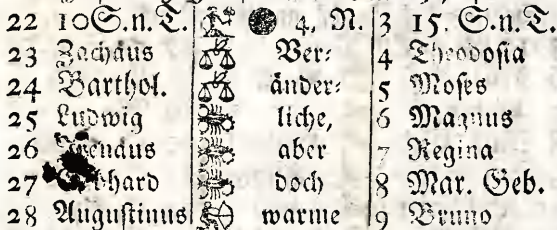 22 10 S. n. T. 4, N. 3 15. S. n. T.
23 Zachäus Ver= 4 Theodosia
24 Barthol. änder= 5 Moses
25 Ludwig liche, 6 Magnus
26 aber 7 Regina
27 doch 8 Mar. Geb.
28 Augustinus warme 9 Bruno